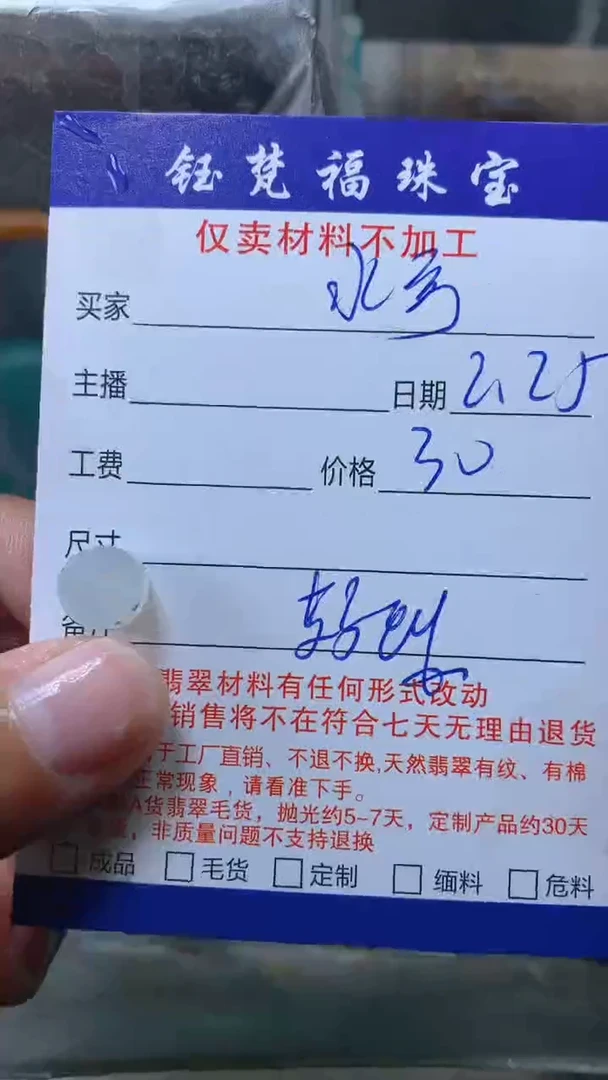 钰梵福珠宝
仅卖材料不加工
买家
主播 日期 2.25
工费 价格 30
尺寸
备注
翡翠材料有任何形式改动
销售将不在符合七天无理由退货
于工厂直销、不退不换,天然翡翠有纹、有棉
正常现象，请看准下手。
A货翡翠毛货，抛光约5-7天，定制产品约30天
非质量问题不支持退换
成品 毛货 定制 缅料 危料